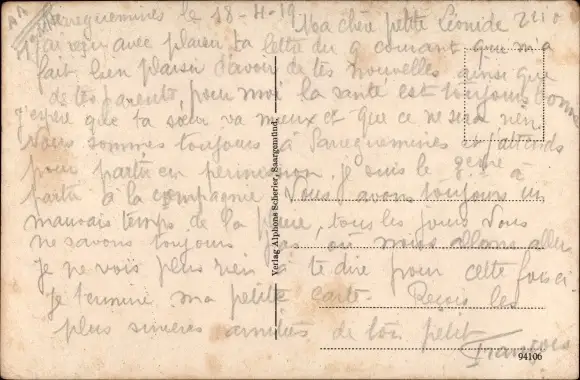 Sarreguemines le 18-4-19
Ma chère petite Léonide
J'ai reçu avec plaisir ta lettre du 9 courant que m'a
fait bien plaisir d'avoir de tes nouvelles ainsi que
de tes parents, pour moi la santé est toujours bonne
j'espère que ta sœur va mieux et que ce ne sera rien
Nous sommes toujours à Sarreguemines et j'attends
pour partir en permission, je suis le à
partir à la compagnie. Nous avons toujours un
mauvais temps de la pluie, tous les jours Nous
ne savons toujours pas où nous allons aller
Je ne vois plus rien à te dire pour cette fois ci
Je termine ma petite carte. Reçois les
plus sincères amitiés de ton petit
François
Verlag Alphons Scherier, Saargemünd.
94106